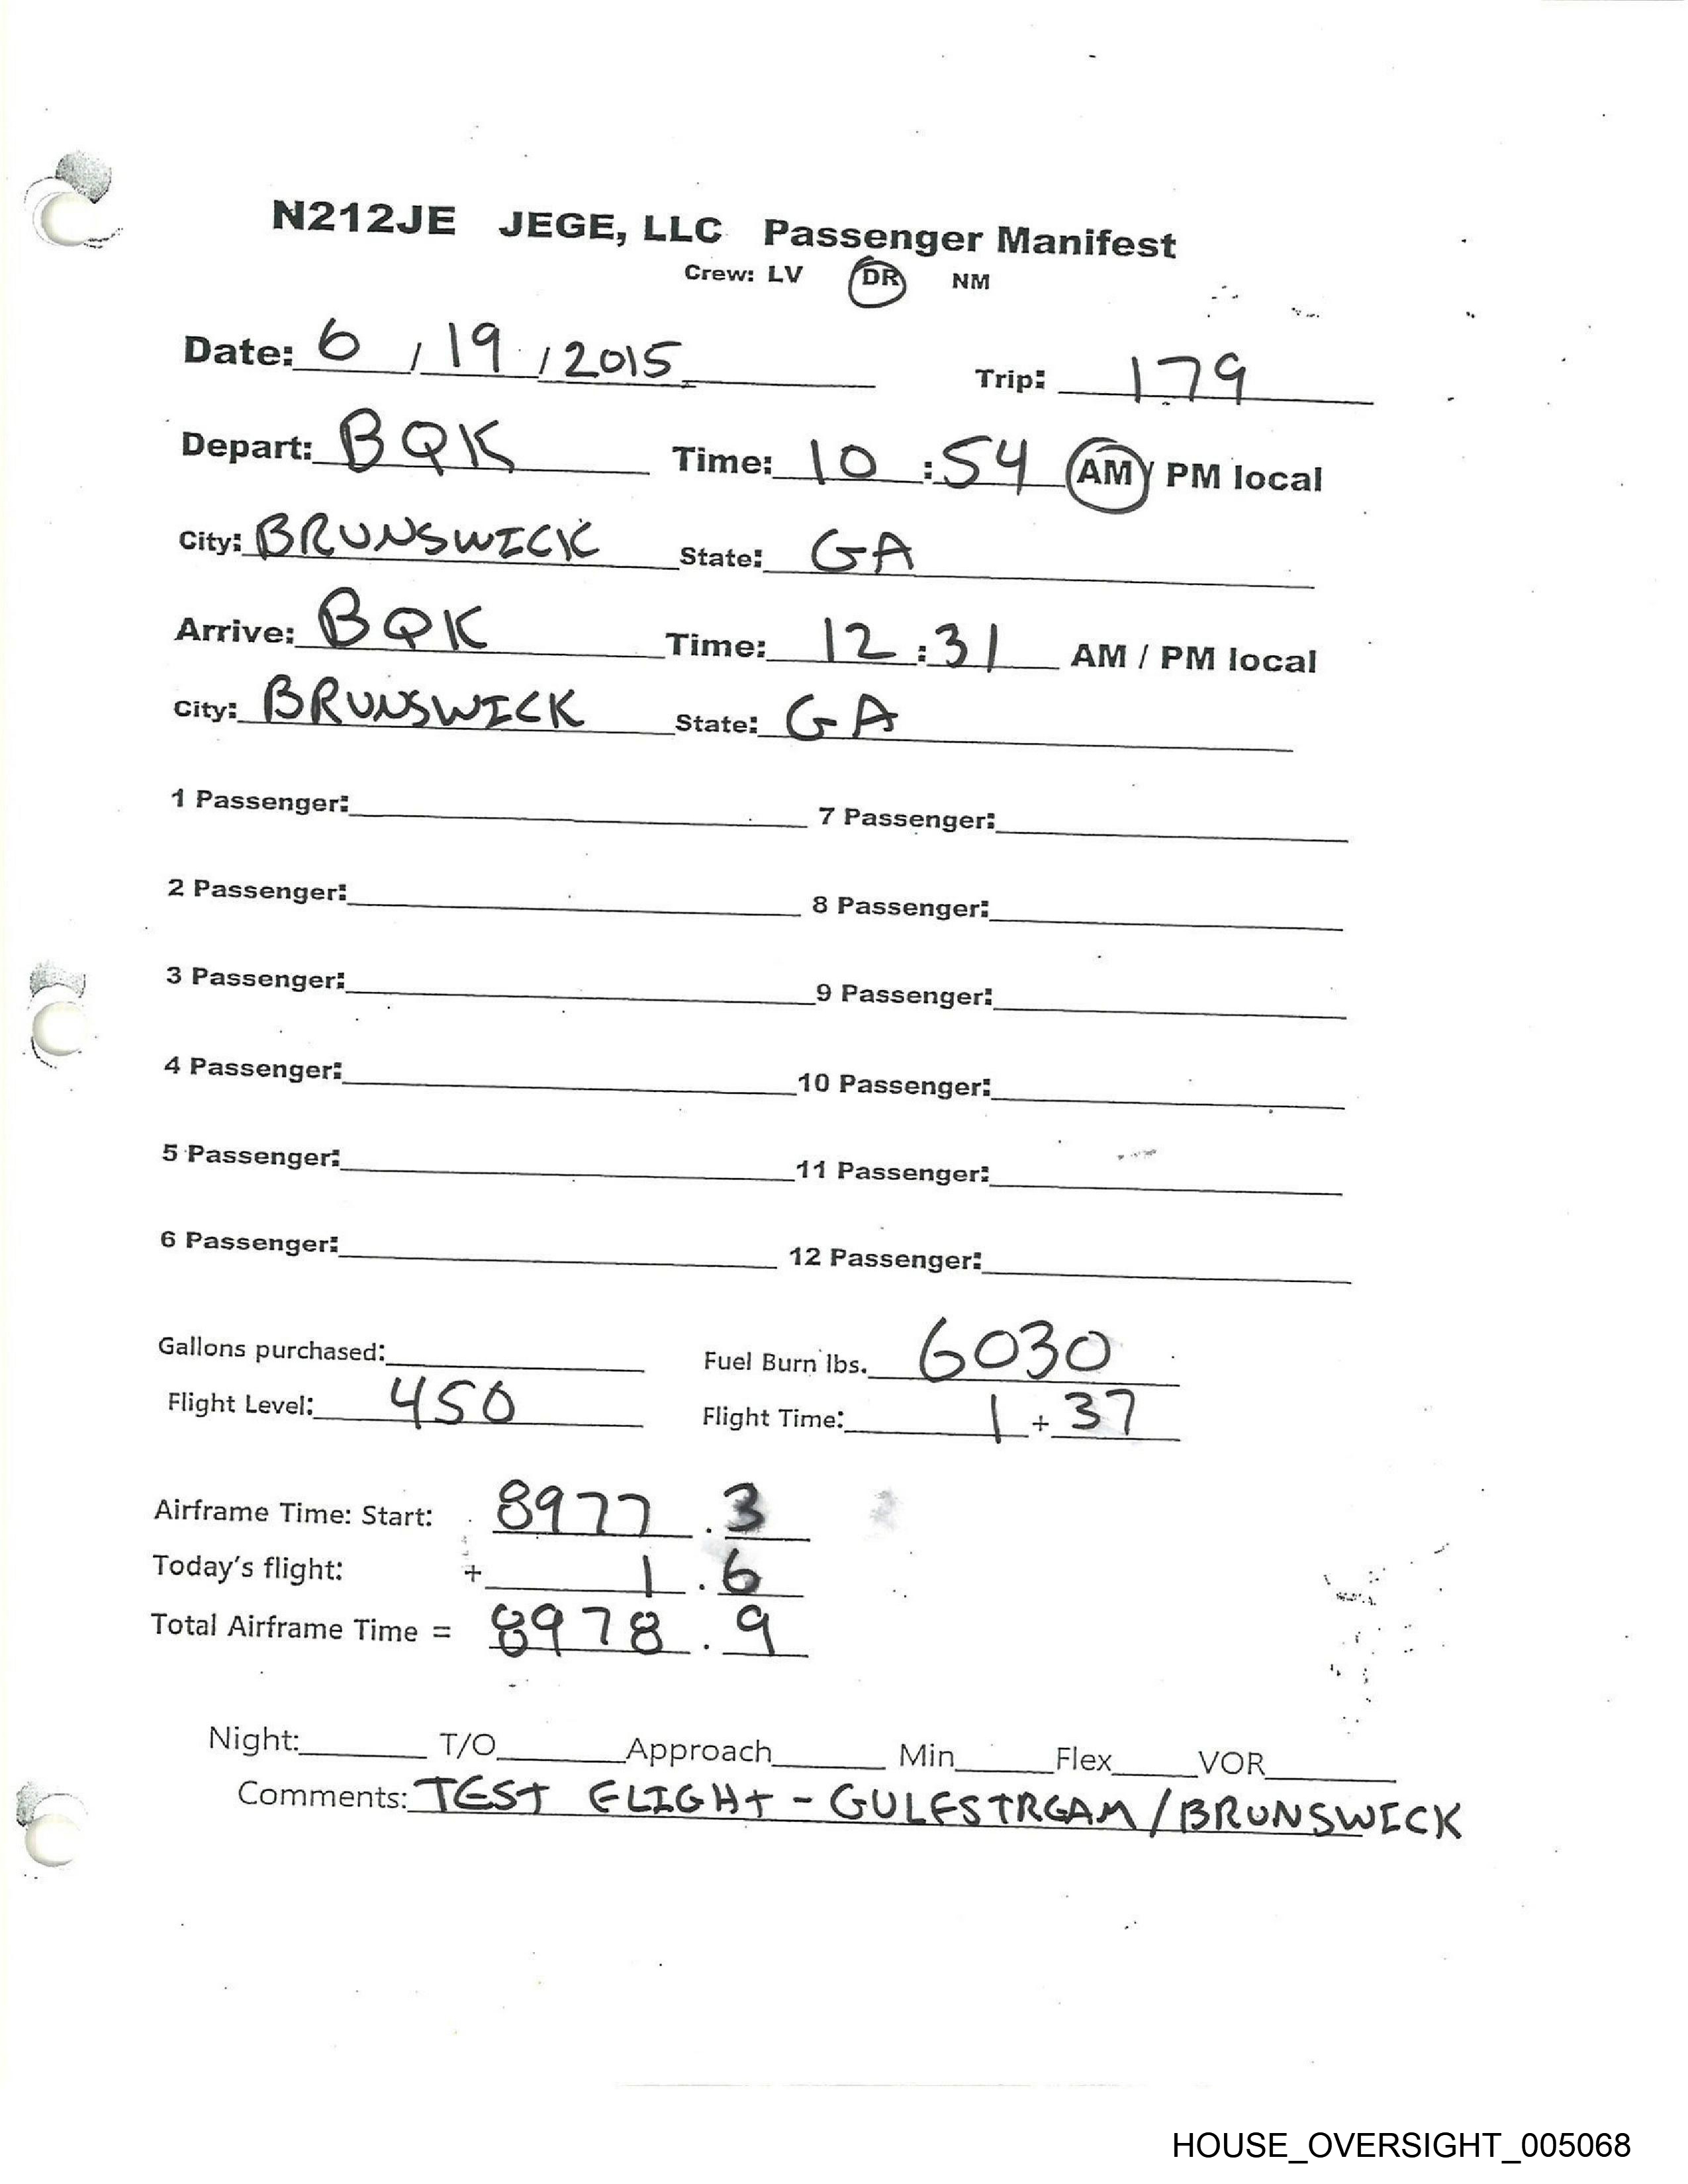 N212JE JEGE, LLC Passenger Manifest
Crew: LV DR NM
Date: 6 / 19 / 2015 Trip: 179
Depart: BQK Time: 10 : 54 AM / PM local
City: BRUNSWICK State: GA
Arrive: BQK Time: 12 : 31 AM / PM local
City: BRUNSWICK State: GA
1 Passenger: 7 Passenger:
2 Passenger: 8 Passenger:
3 Passenger: 9 Passenger:
4 Passenger: 10 Passenger:
5 Passenger: 11 Passenger:
6 Passenger: 12 Passenger:
Gallons purchased: Fuel Burn lbs. 6030
Flight Level: 450 Flight Time: 1 + 37
Airframe Time: Start: 8977 . 3
Today's flight: + 1 . 6
Total Airframe Time = 8978 . 9
Night: T/O Approach Min Flex VOR
Comments: TEST FLIGHT - GULFSTREAM / BRUNSWICK
HOUSE_OVERSIGHT_005068